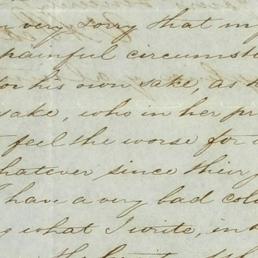 very sorry that my
painful circumst
for his own sake, as
sake, who in her pr
feel the worse for
whatever since their
I have a very bad col
what I write, in